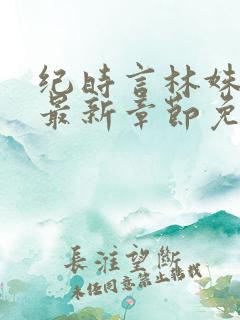 纪时言林姝
最新章节免
長淮望斷
未经同意禁止转载